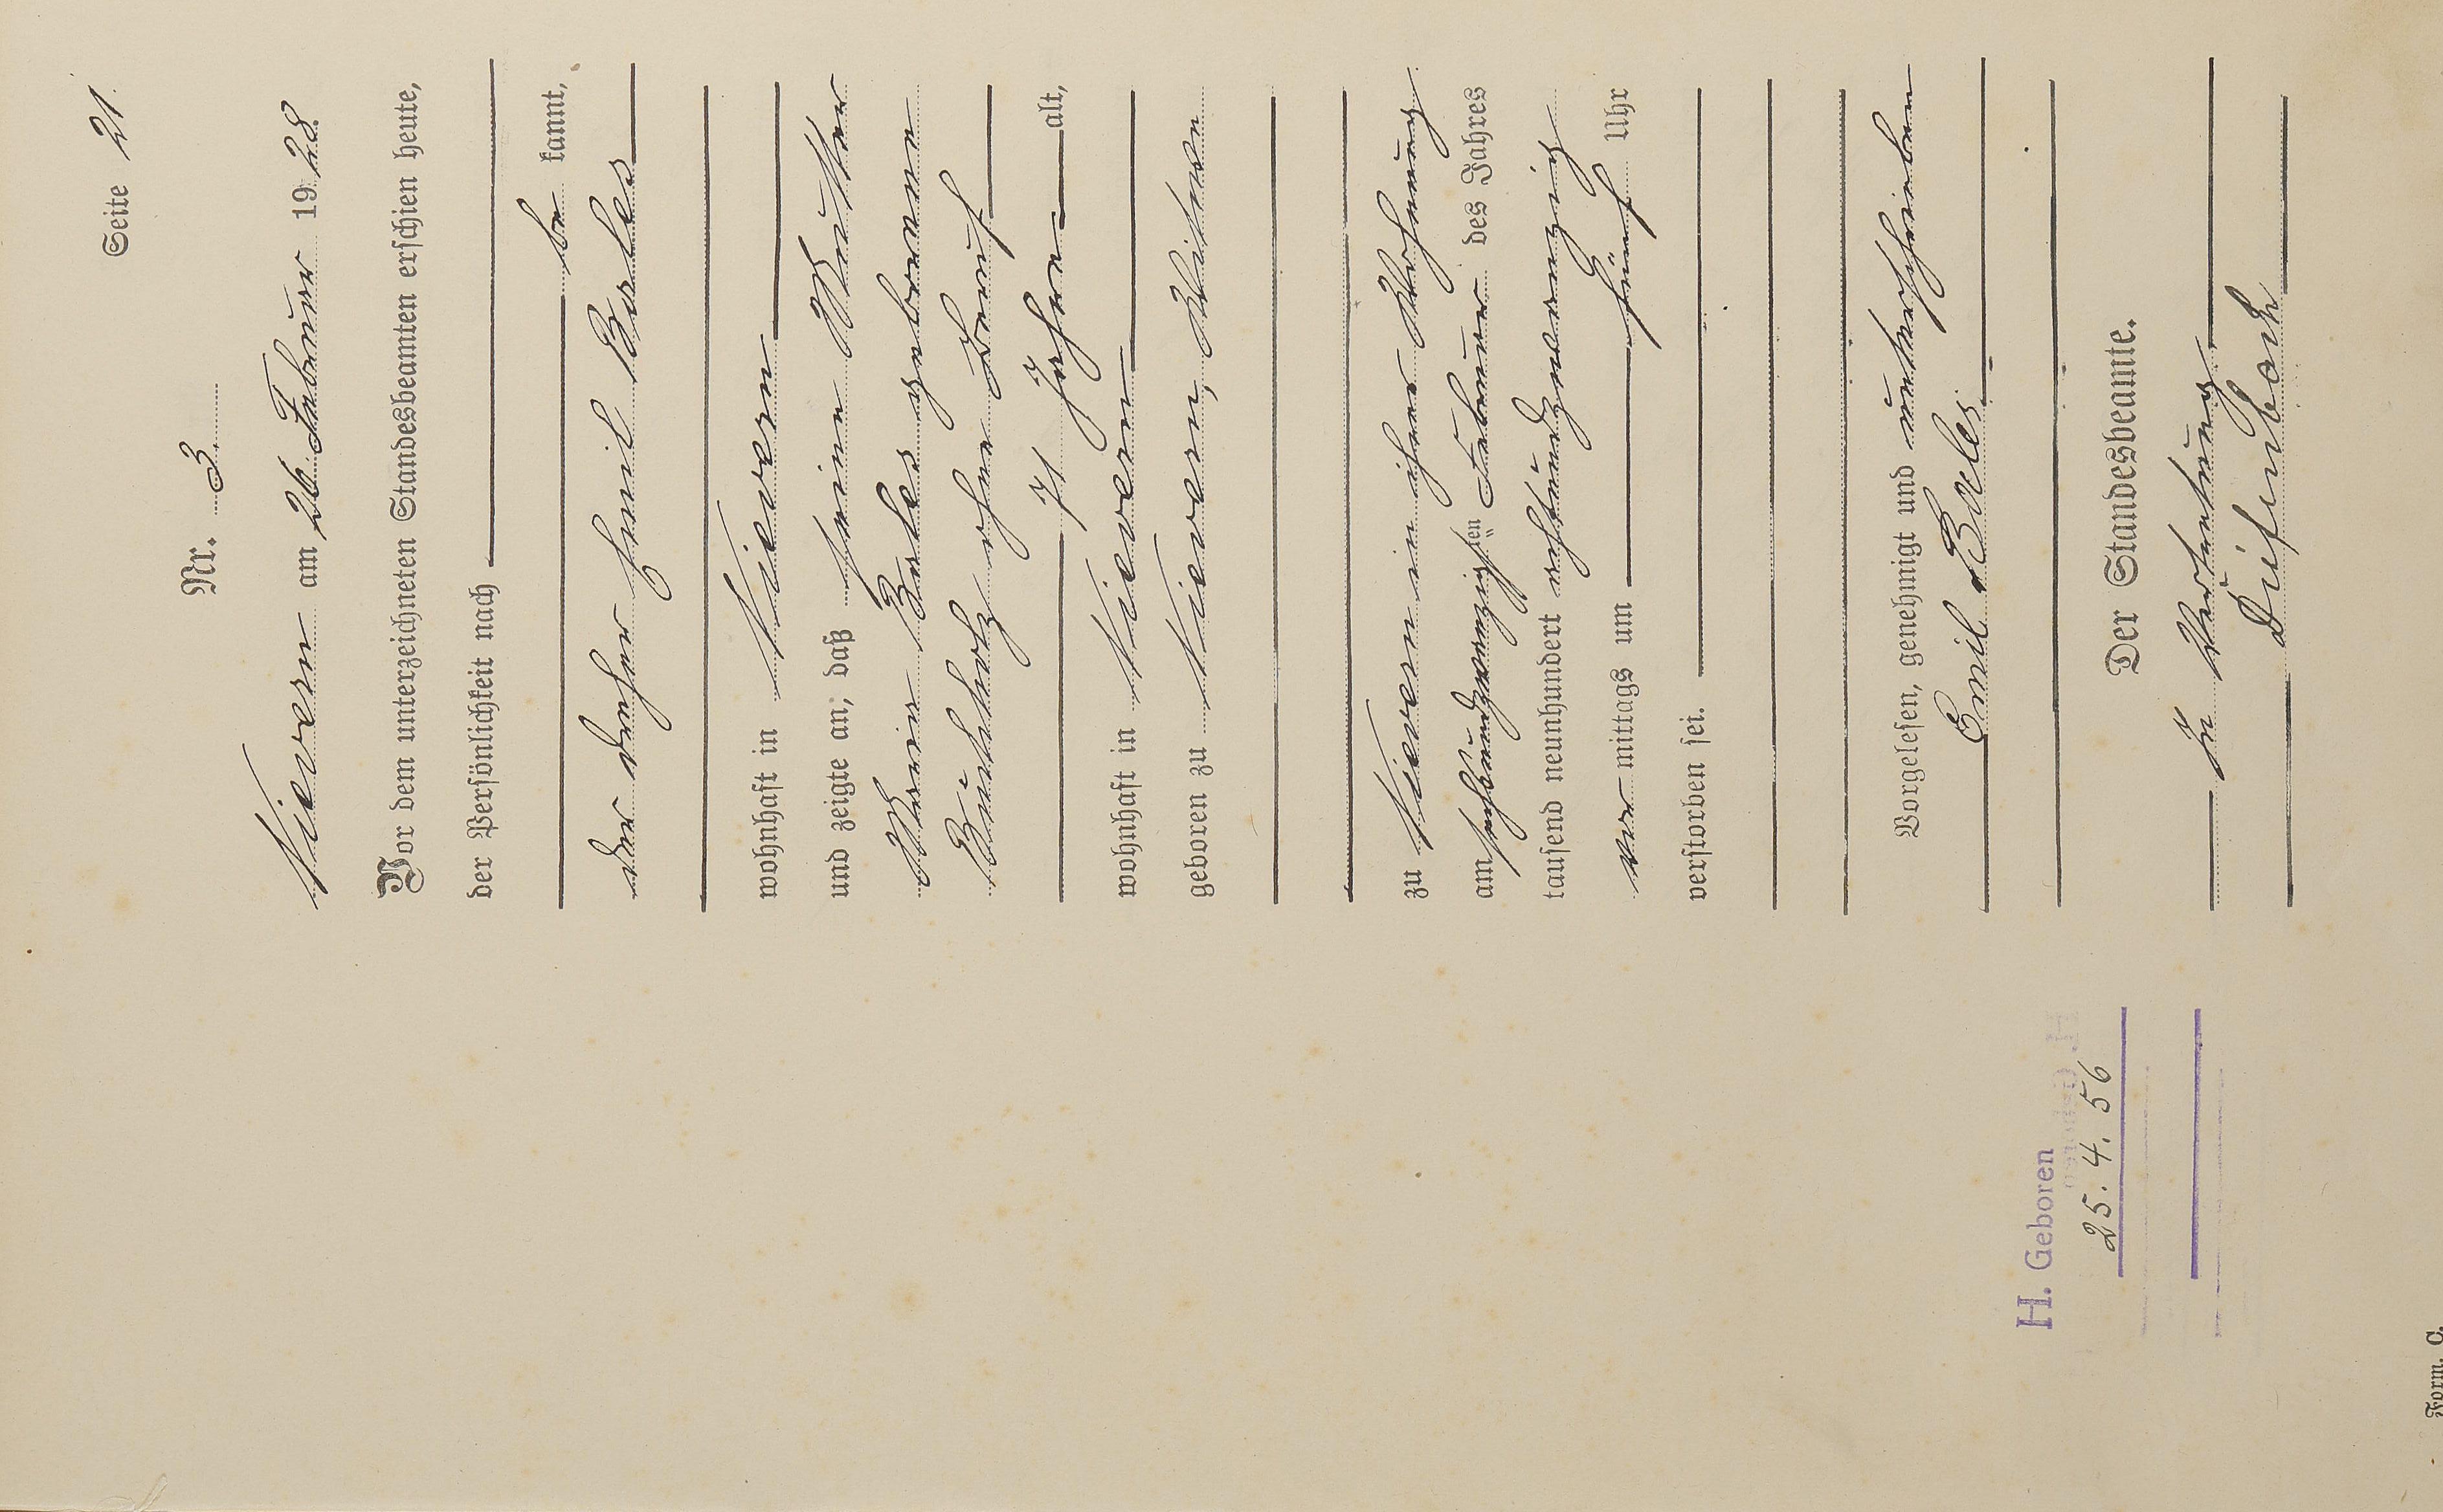 Seite 21.
Nr. 3.
Nievern am 26. Februar 1928.
Vor dem unterzeichneten Standesbeamten erschien heute,
der Persönlichkeit nach
be kannt,
der Dreher Emil Borles
wohnhaft in Nievern
und zeigte an, daß seine Mutter
Maria Borles geborene
ohne Beruf
71 Jahre alt,
wohnhaft in Nievern
geboren zu Nievern, Witwe
zu Nievern in ihrer Wohnung
am sechsundzwanzigsten Februar des Jahres
tausend neunhundert achtundzwanzig
vor mittags um fünf Uhr
verstorben sei.
Vorgelesen, genehmigt und unterschrieben
Emil Borles
Der Standesbeamte.
In Vertretung
H. Geboren
25. 4. 56
Form. C.